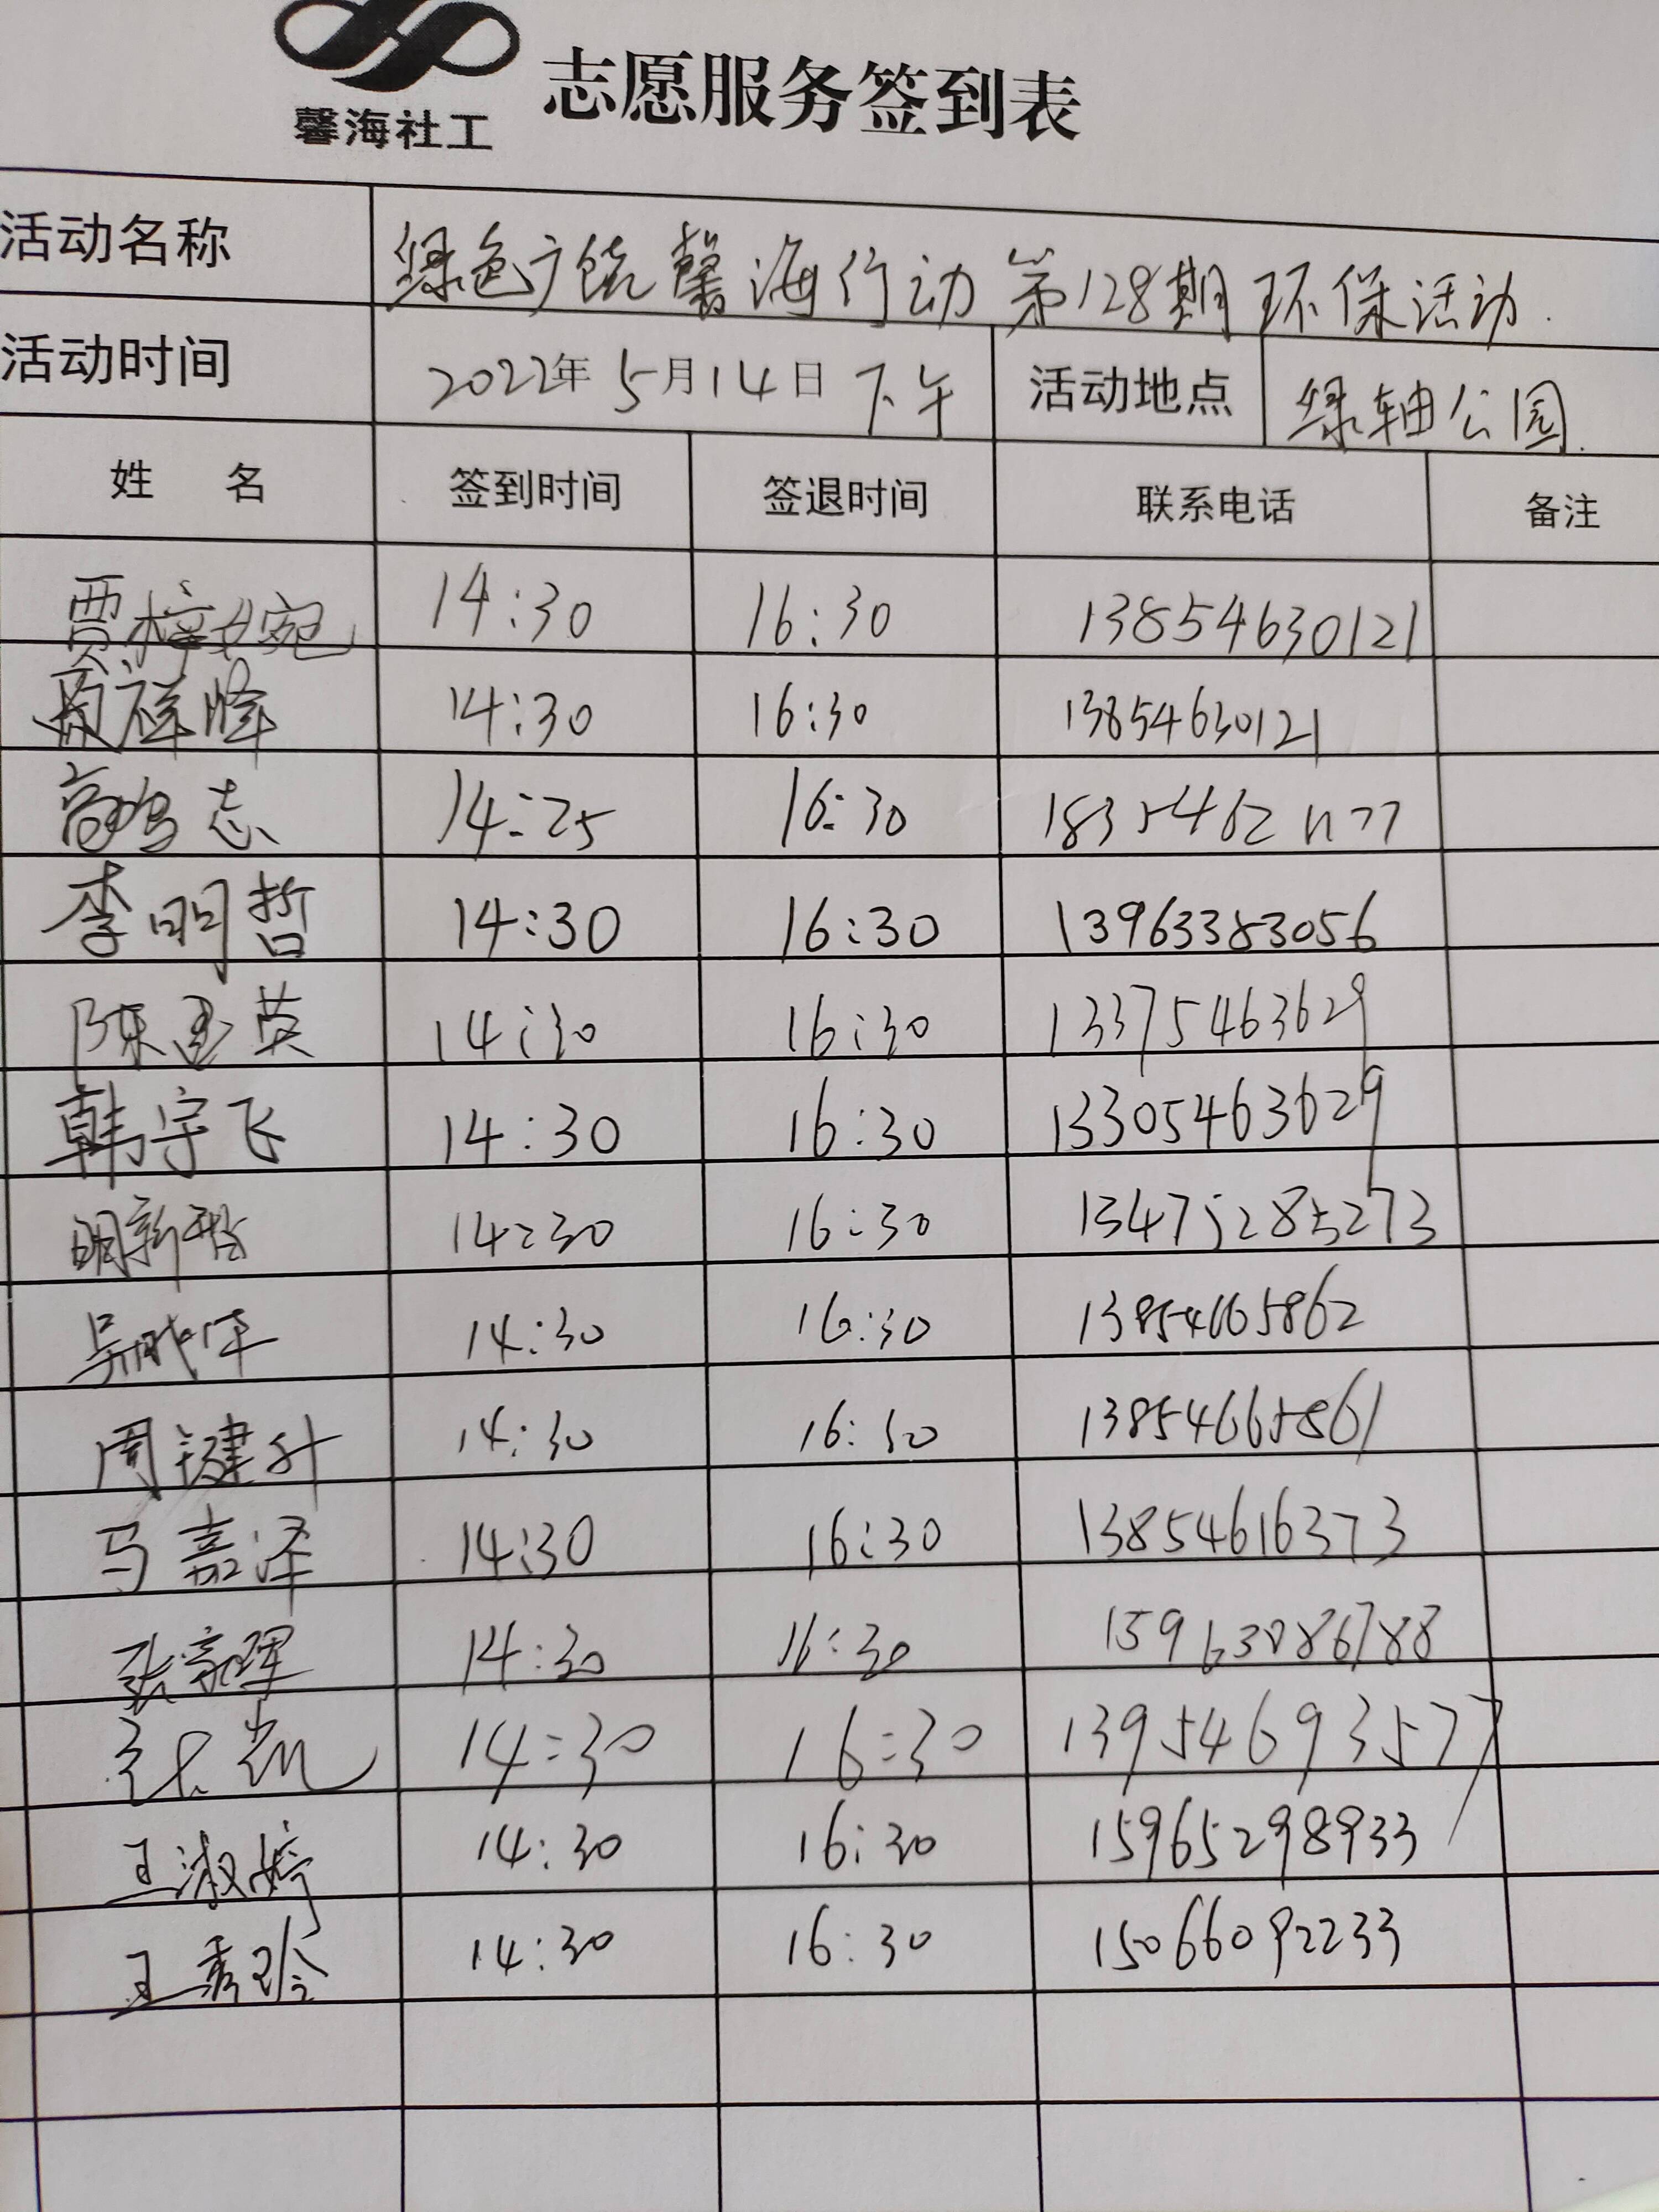 馨海社工
志愿服务签到表
活动名称 绿色广饶馨海行动 第128期环保活动.
活动时间 2022年5月14日 下午 活动地点 绿轴公园.
姓 名 签到时间 签退时间 联系电话 备注
贾梓婉 14:30 16:30 13854630121
祥峰 14:30 16:30 13854630121
高鸣志 14:25 16:30
李明哲 14:30 16:30 13963383056
陈 英 14:30 16:30 13375463629
韩宇飞 14:30 16:30 13305463629
明新 14:30 16:30 13475285273
吴 14:30 16:30 13854665862
周键升 14:30 16:30 13854665861
马嘉泽 14:30 16:30 13854616373
张家珲 14:30 16:30
张凯 14:30 16:30 13954693577
王淑婷 14:30 16:30 15965298933
王秀玲 14:30 16:30 15066092233